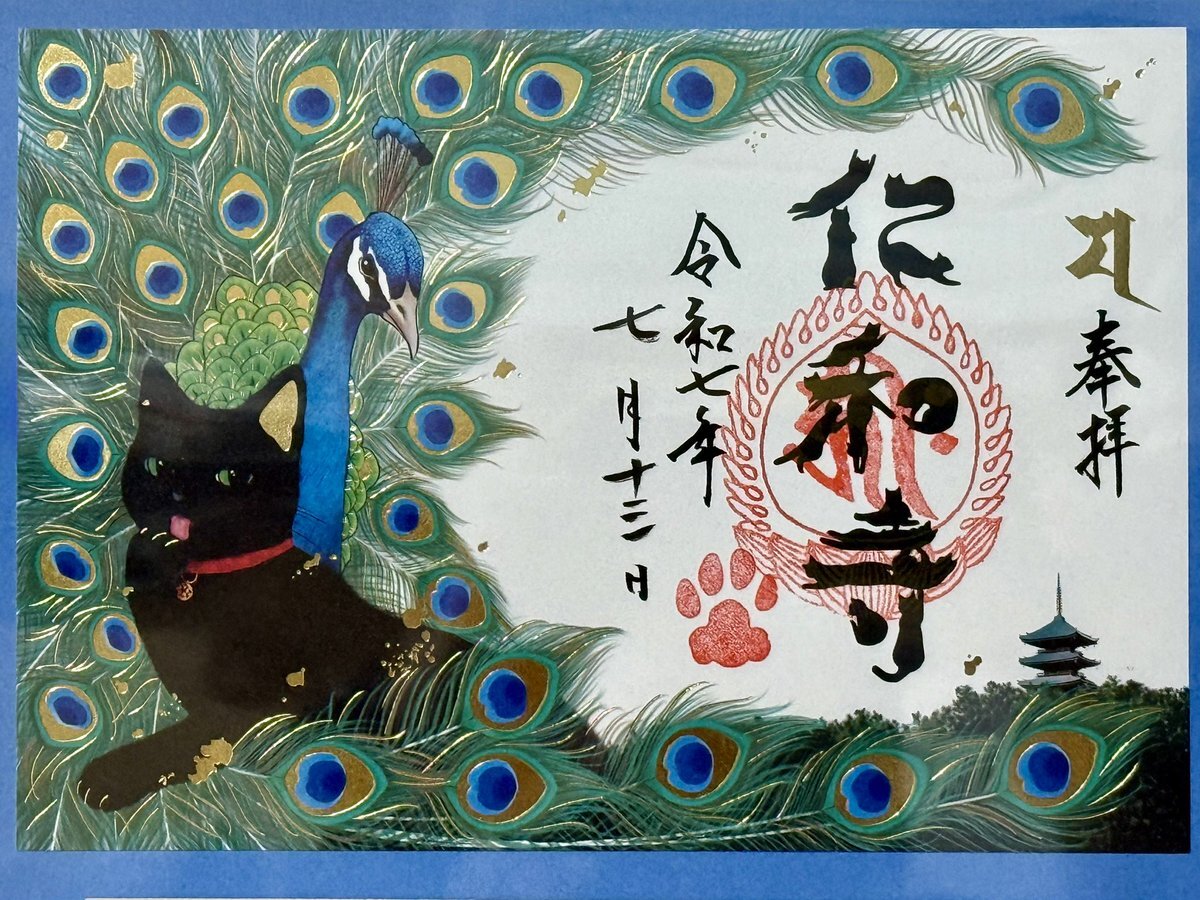 奉拝
仁和寺
令和七年
七月十三日